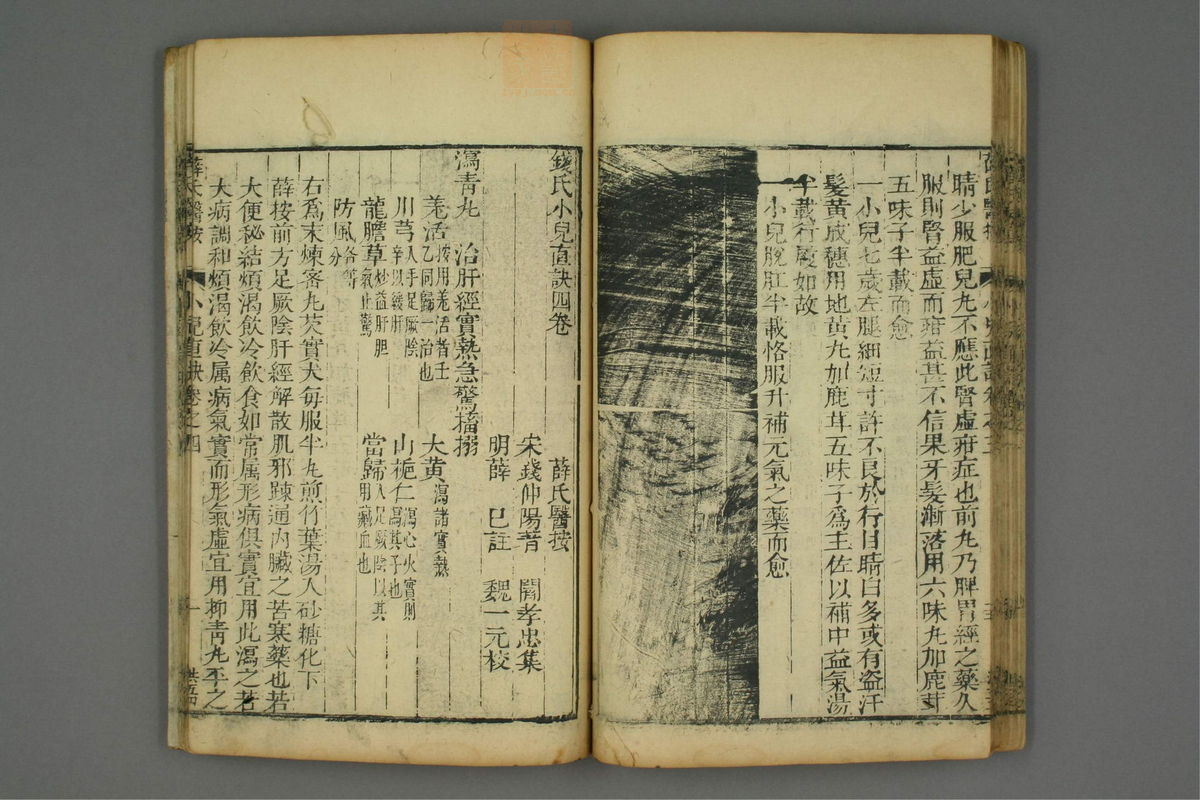 睛少服肥兒丸不應此腎虛疳症也前丸乃脾胃經之藥久
服則腎益虛而疳益甚不信果牙髮漸落用六味丸加鹿茸
五味子半載而愈
一小兒七歲左腿細短寸許不良於行目睛白多或有盗汗
髮黄成穗用地黄丸加鹿茸五味子為主佐以補中益氣湯
半載行履如故
一小兒脫肛半載恪服升補元氣之藥而愈
錢氏小兒直訣四卷
薛氏醫按
宋錢仲陽著 閻孝忠集
明薛 已註 魏一元校
瀉青丸 治肝經實熱急驚搐搦
羗活按用羗活者壬乙同歸一治也 大黄瀉諸實熱
川芎入手足厥陰辛以緩肝 山梔仁瀉心火實則瀉其子也
龍膽草炒益肝胆氣止驚 當歸入足厥陰以其用治血也
防風各等分
右為末煉蜜丸芡實大每服半丸煎竹葉湯入砂糖化下
薛按前方足厥陰肝經解散肌邪踈通内臟之苦寒藥也若
大便秘結煩渴飲冷飲食如常属形病俱實宜用此瀉之若
大病調和煩渴飲冷属病氣實而形氣虛宜用抑青丸平之
薛氏醫按 小兒直訣卷之四 一